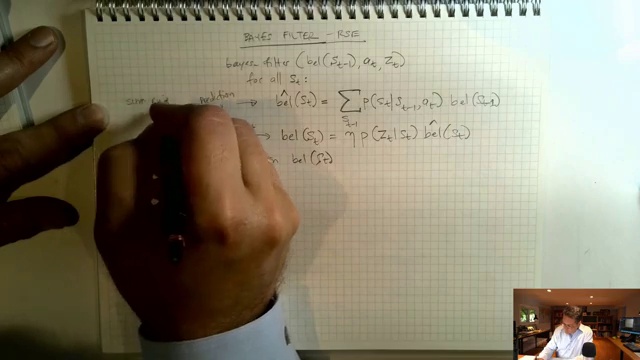 BAYES FILTER - RSE
bayes filter ( bel(S_{t-1}), a_t, z_t )
for all S_t:
prediction → bel̂(S_t) = ∑_{S_{t-1}} p(S_t | S_{t-1}, a_t) bel(S_{t-1})
→ bel(S_t) = η p(z_t | S_t) bel̂(S_t)
bel(S_t)